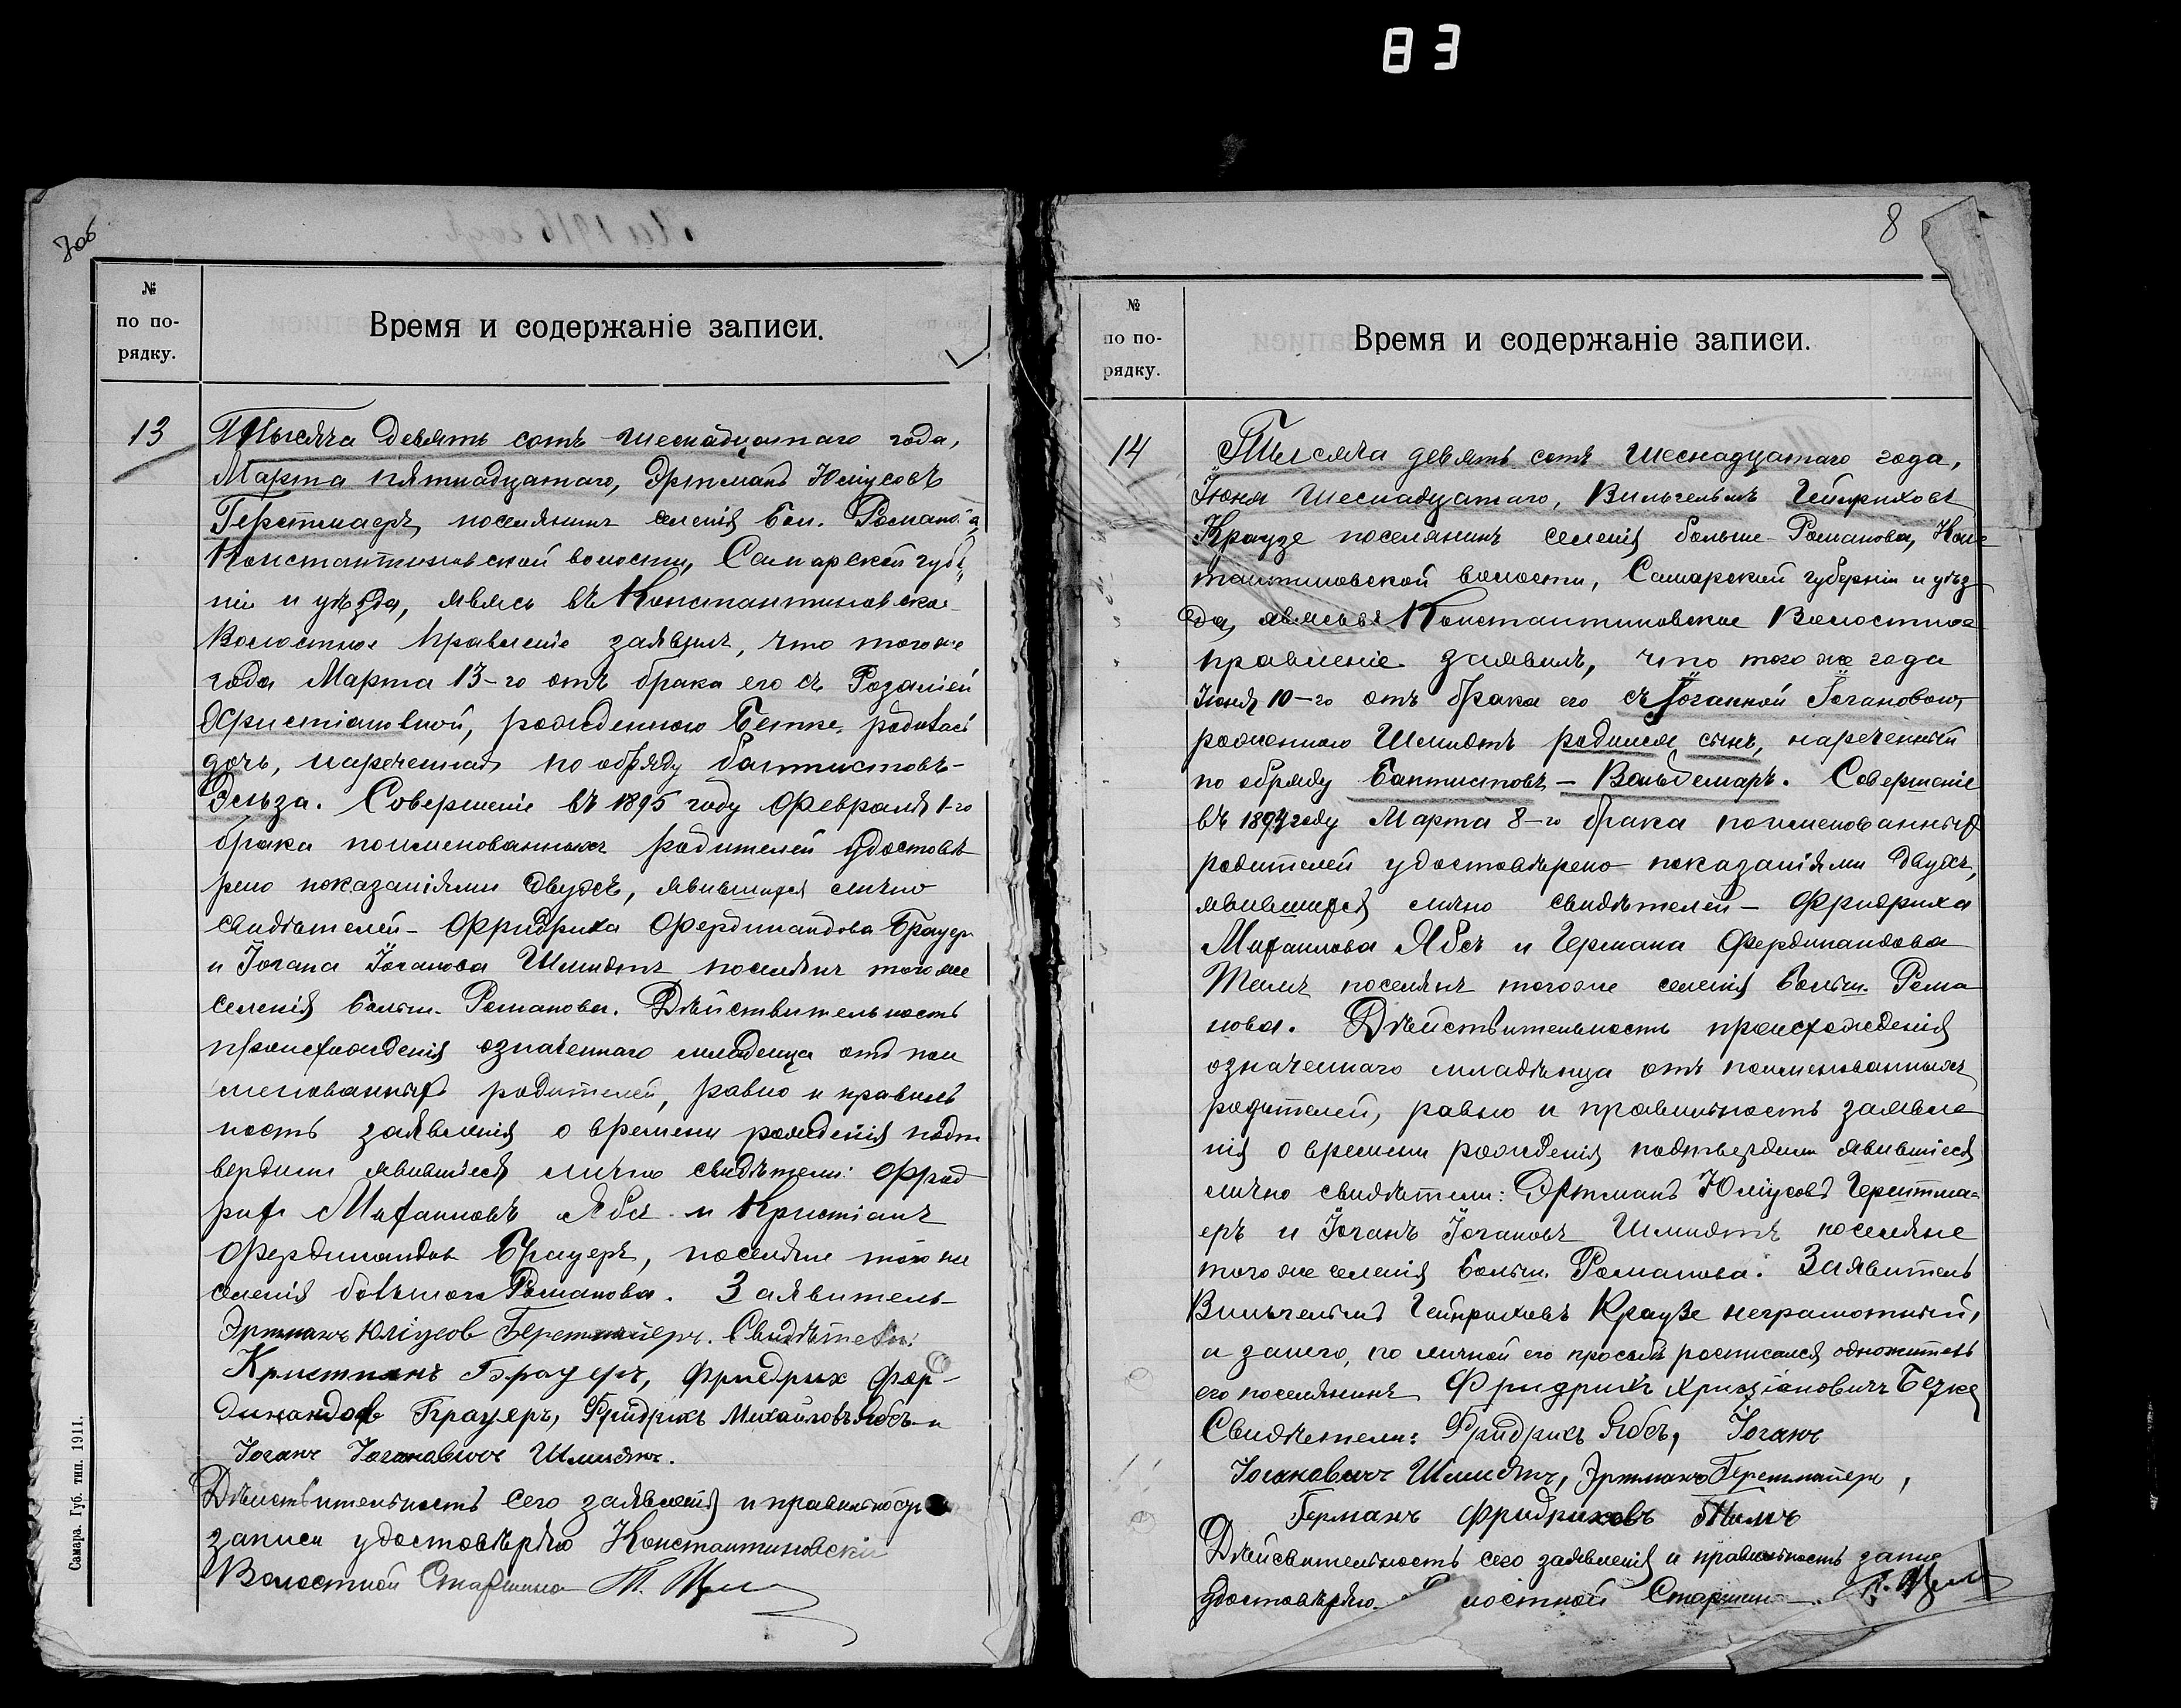 83
7об
№
по по-
рядку.
Время и содержаніе записи.
13
Тысяча девять сотъ шеснадцатаго года,
Марта пятнадцатаго, Эртманъ Юліусовъ
Герстмаеръ, поселянинъ селенія Бол. Романова,
Константиновской волости, Самарской губер
ніи и уѣзда, явясь въ Константиновское
Волостное Правленіе заявилъ, что того же
года Марта 13-го отъ брака его съ Розаліей
Христіановной, рожденною Бетке, родилась
дочь, нареченная по обряду баптистовъ-
Эльза. Совершеніе въ 1895 году Февраля 1-го
брака поименованныхъ родителей удостовѣ
рено показаніями двухъ, явившихся лично
свидѣтелей - Фридриха Фердинандова Брауеръ
и Іогана Іоганова Шмидтъ поселянъ того же
селенія Больш. Романова. Дѣйствительность
происхожденія означеннаго младенца отъ пои
менованныхъ родителей, равно и правиль
ность заявленія о времени рожденія подт
вердили явившіеся лично свидѣтели: Фрид
рихъ Михаиловъ Ябсъ и Кристіанъ
Фердинандовъ Брауеръ, поселяне того же
селенія большого Романова. Заявитель-
Эртманъ Юліусов Герстмайеръ. Свидѣтели:
Кристианъ Брауеръ, Фридрих Фер-
динандов Брауеръ, Фридрихъ Михайловъ Ябсъ и
Іоганъ Іогановичъ Шмидтъ.
Дѣйствительность сего заявленія и правильность
записи удостовѣряю Константиновскій
Волостной Старшина
Самара. Губ. тип. 1911.
8
№
по по-
рядку.
Время и содержаніе записи.
14
Тысяча девять сотъ шеснадцатаго года,
Іюня шеснадцатаго, Вильгельмъ Гейнриховъ
Краузе поселянинъ селенія больше-Романова, Конс
тантиновской волости, Самарской губерніи и уѣз
да, явясь въ Константиновское Волостное
правленіе заявилъ, что того же года
Іюня 10-го отъ брака его съ Іоганной Іогановою,
рожденною Шмидтъ родился сынъ, нареченный
по обряду баптистовъ - Вольдемаръ. Совершеніе
въ 1894 году Марта 8-го брака поименованныхъ
родителей удостовѣрено показаніями двухъ,
явившихся лично свидѣтелей - Фридриха
Михаилова Ябсъ и Германа Фердинандова
Тилъ поселянъ того же селенія Больш. Рома
нова. Дѣйствительность происхожденія
означеннаго младѣнца отъ поименованныхъ
родителей, равно и правильность заявле
нія о времени рожденія подтвердили явившіеся
лично свидѣтели: Эртманъ Юліусовъ Герстма-
еръ и Іоганъ Іогановъ Шмидтъ поселяне
того же селенія Больш. Романова. Заявитель
Вильгельмъ Гейнриховъ Краузе неграмотный,
а за него, по личной его просьбѣ росписался одножитель
его поселянинъ Фридрихъ Христіановичъ Бетке
Свидѣтели: Фридрихъ Ябсъ, Іоганъ
Іогановичъ Шмидтъ, Эртманъ Герстмайеръ,
Германъ Фридриховъ Тилъ
Дѣйсвительность сего заявленія и правильность запис
удостовѣряю. лостной Старшин